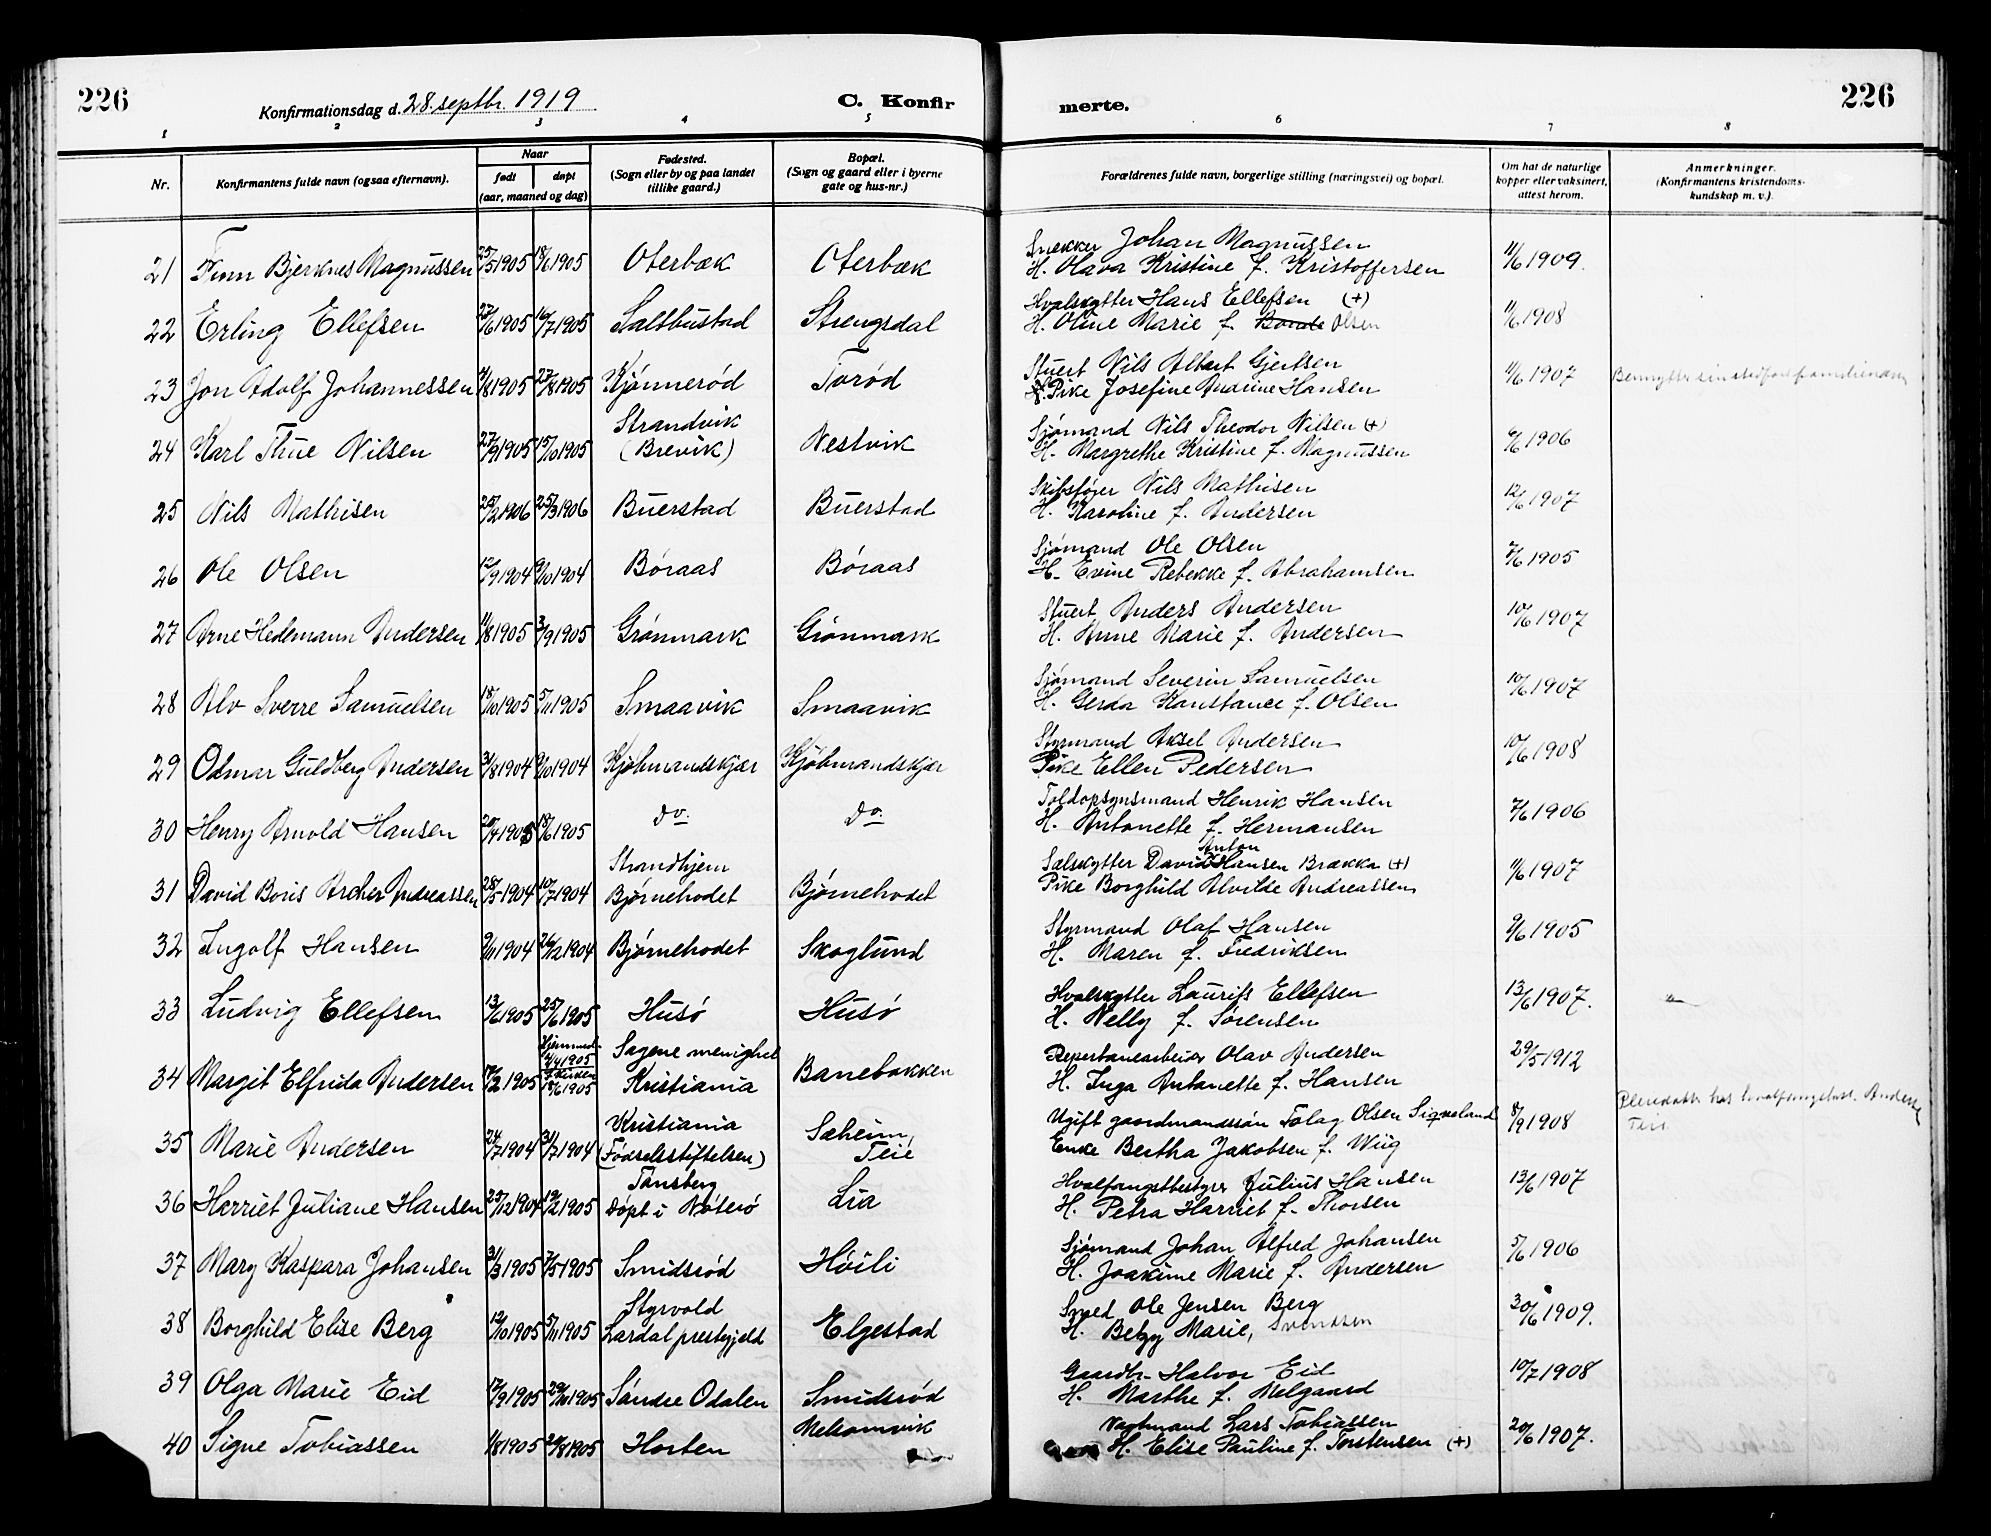 226
Konfirmationsdag d. 28. septbr. 1919
C. Konfir
merte.
226
1 2 3 4 5 6 7 8
Nr.
Konfirmantens fulde navn (ogsaa efternavn).
Naar
født døpt
(aar, maaned og dag)
Fødested.
(Sogn eller by og paa landet
tillike gaard.)
Bopæl.
(Sogn og gaard eller i byerne
gate og hus-nr.)
Forældrenes fulde navn, borgerlige stilling (næringsvei) og bopæl.
Om hat de naturlige
kopper eller vaksinert,
attest herom.
Anmerkninger.
(Konfirmantens kristendoms-
kundskap m. v.).
Snekker Johan Magnussen
21 Finn Bjerknes Magnussen 25/5 1905 18/6 1905 Oterbæk Oterbæk H. Olava Kristine f. Kristoffersen 11/6 1909.
Hvalskytter Hans Ellefsen (+)
22 Erling Ellefsen 23/6 1905 16/7 1905 Saltbustad Strengsdal H. Oline Marie f. Bonde Olsen 11/6 1908
Stuert Nils Albert Gjertsen
23 Jon Adolf Johannessen 4/8 1905 27/8 1905 Kjønnerød Torød Pike Josefine Andrine Hansen 11/6 1907
Strandvik
Sjømand Nils Theodor Nilsen (+)
24 Karl Thue Nilsen 27/9 1905 15/10 1905 (Brevik) Vestvik H. Margrethe Kristine f. Magnussen 9/6 1906
Skibsfører Nils Mathisen
25 Nils Mathisen 25/2 1906 25/3 1906 Buerstad Buerstad H. Karoline f. Andersen 12/6 1907
Sjømand Ole Olsen
26 Ole Olsen 12/9 1904 9/10 1904 Børaas Børaas H. Evine Rebekke f. Abrahamsen 7/6 1905
Stuert Anders Andersen
27 Arne Hedemann Andersen 11/8 1905 3/9 1905 Grønmark Grønmark H. Anne Marie f. Andersen 10/6 1907
Sjømand Severin Samuelsen
28 Alv Sverre Samuelsen 18/10 1905 5/11 1905 Smaavik Smaavik H. Gerda Konstance f. Olsen 10/6 1907
Styrmand Aksel Andersen
29 Odmar Guldberg Andersen 31/8 1904 9/10 1904 Kjøbmandskjær Kjøbmandskjær Pike Ellen Pedersen 10/6 1908
Toldopsynsmand Henrik Hansen
30 Henry Arnold Hansen 20/4 1905 18/6 1905 do. do. H. Antonette f. Hermansen 7/6 1906
Strandhjem
Anton
Sælskytter David Hansen Brækka (+)
31 David Boris Archer Andreassen 28/5 1904 10/7 1904 Bjørnehodet Bjørnehodet Pike Borghild Alvilde Andreassen 11/6 1907
Styrmand Olaf Hansen
32 Ingolf Hansen 9/11 1904 26/12 1904 Bjørnehodet Skoglund H. Maren f. Fredriksen 9/6 1905
Hvalskytter Laurits Ellefsen
33 Ludvig Ellefsen 13/6 1905 25/6 1905 Husø Husø H. Nelly f. Sørensen 13/6 1907.
Sagene menighet
Repertbanearbeider Olav Andersen
34 Margit Elfrida Andersen 17/2 1905 18/6 1905 Kristiania Banebakken H. Inga Antonette f. Hansen 29/5 1912
Kristiania Sæheim,
Ugift gaardmandssøn Tolag Olsen Sigveland
35 Marie Andersen 24/7 1904 31/7 1904 (Fødselsstiftelsen) Teie Enke Bertha Jakobsen f. Wiig 8/9 1908
Teie
Tønsberg
Hvalfangstbestyrer Julius Hansen
36 Harriet Juliane Hansen 25/12 1904 19/2 1905 Døpt i Nøterø Lia H. Petra Harriet f. Thorsen 13/6 1907
Sjømand Johan Alfred Johansen
37 Mary Kaspara Johansen 31/3 1905 7/5 1905 Smidsrød Høili H. Joakime Marie f. Andersen 5/6 1906
Styrvold
Smed Ole Jensen Berg
38 Borghild Elise Berg 12/10 1905 5/11 1905 Lardal prestgjeld Elgestad H. Betzy Marie, Svendsen 30/6 1909.
Gaardbr. Halvor Eid
39 Olga Marie Eid 17/9 1905 29/10 1905 Søndre Odalen Smidsrød H. Marthe f. Melgaard 10/7 1908
Vagtmand Lars Tobiassen
40 Signe Tobiassen 1/8 1905 20/8 1905 Horten Mekornvik H. Elise Pauline f. Torstensen (+) 20/6 1907.